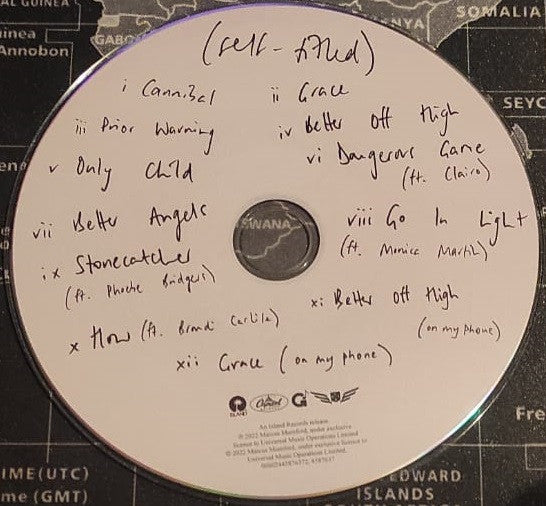 AL GUINEA
SOMALIA
uinea
Annobon
GABO
NYA
(self-titled)
i Cannibal
ii Grace
iii Prior Warning
iv Better Off High
SEYC
v Only Child
vi Dangerous Game
(ft. Clairo)
vii Better Angels
viii Go In Light
(ft. Monica Martin)
WANA
ix Stonecatcher
(ft. Phoebe Bridgers)
x How (ft. Brandi Carlile)
xi Better Off High
(on my phone)
xii Grace (on my phone)
ISLAND
Capitol
An Island Records release.
℗ 2022 Marcus Mumford, under exclusive
licence to Universal Music Operations Limited
© 2022 Marcus Mumford, under exclusive licence to
Universal Music Operations Limited.
Fre
IME(UTC)
me (GMT)
EDWARD
ISLANDS